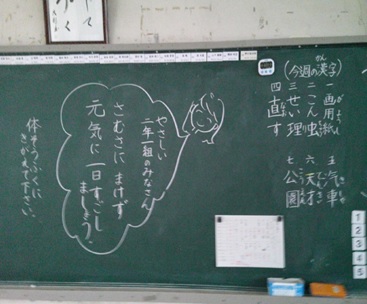 (今週の漢字)
一 画用紙
二 こん虫
三 せい理
四 直す
五 汽車
六 天才
七 公園
やさしい
二年一組のみなさん
さむさに まけず
元気に一日すごし
ましょう。
体そうふくに
きがえて下さい。
1
2
3
4
5